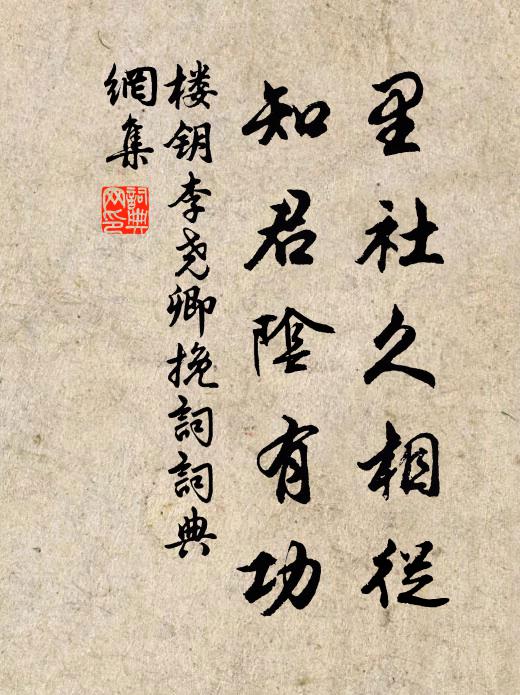 里社久相從
知君陰有功
楼钥李尧卿挽詞詞典
網集
詞典网印